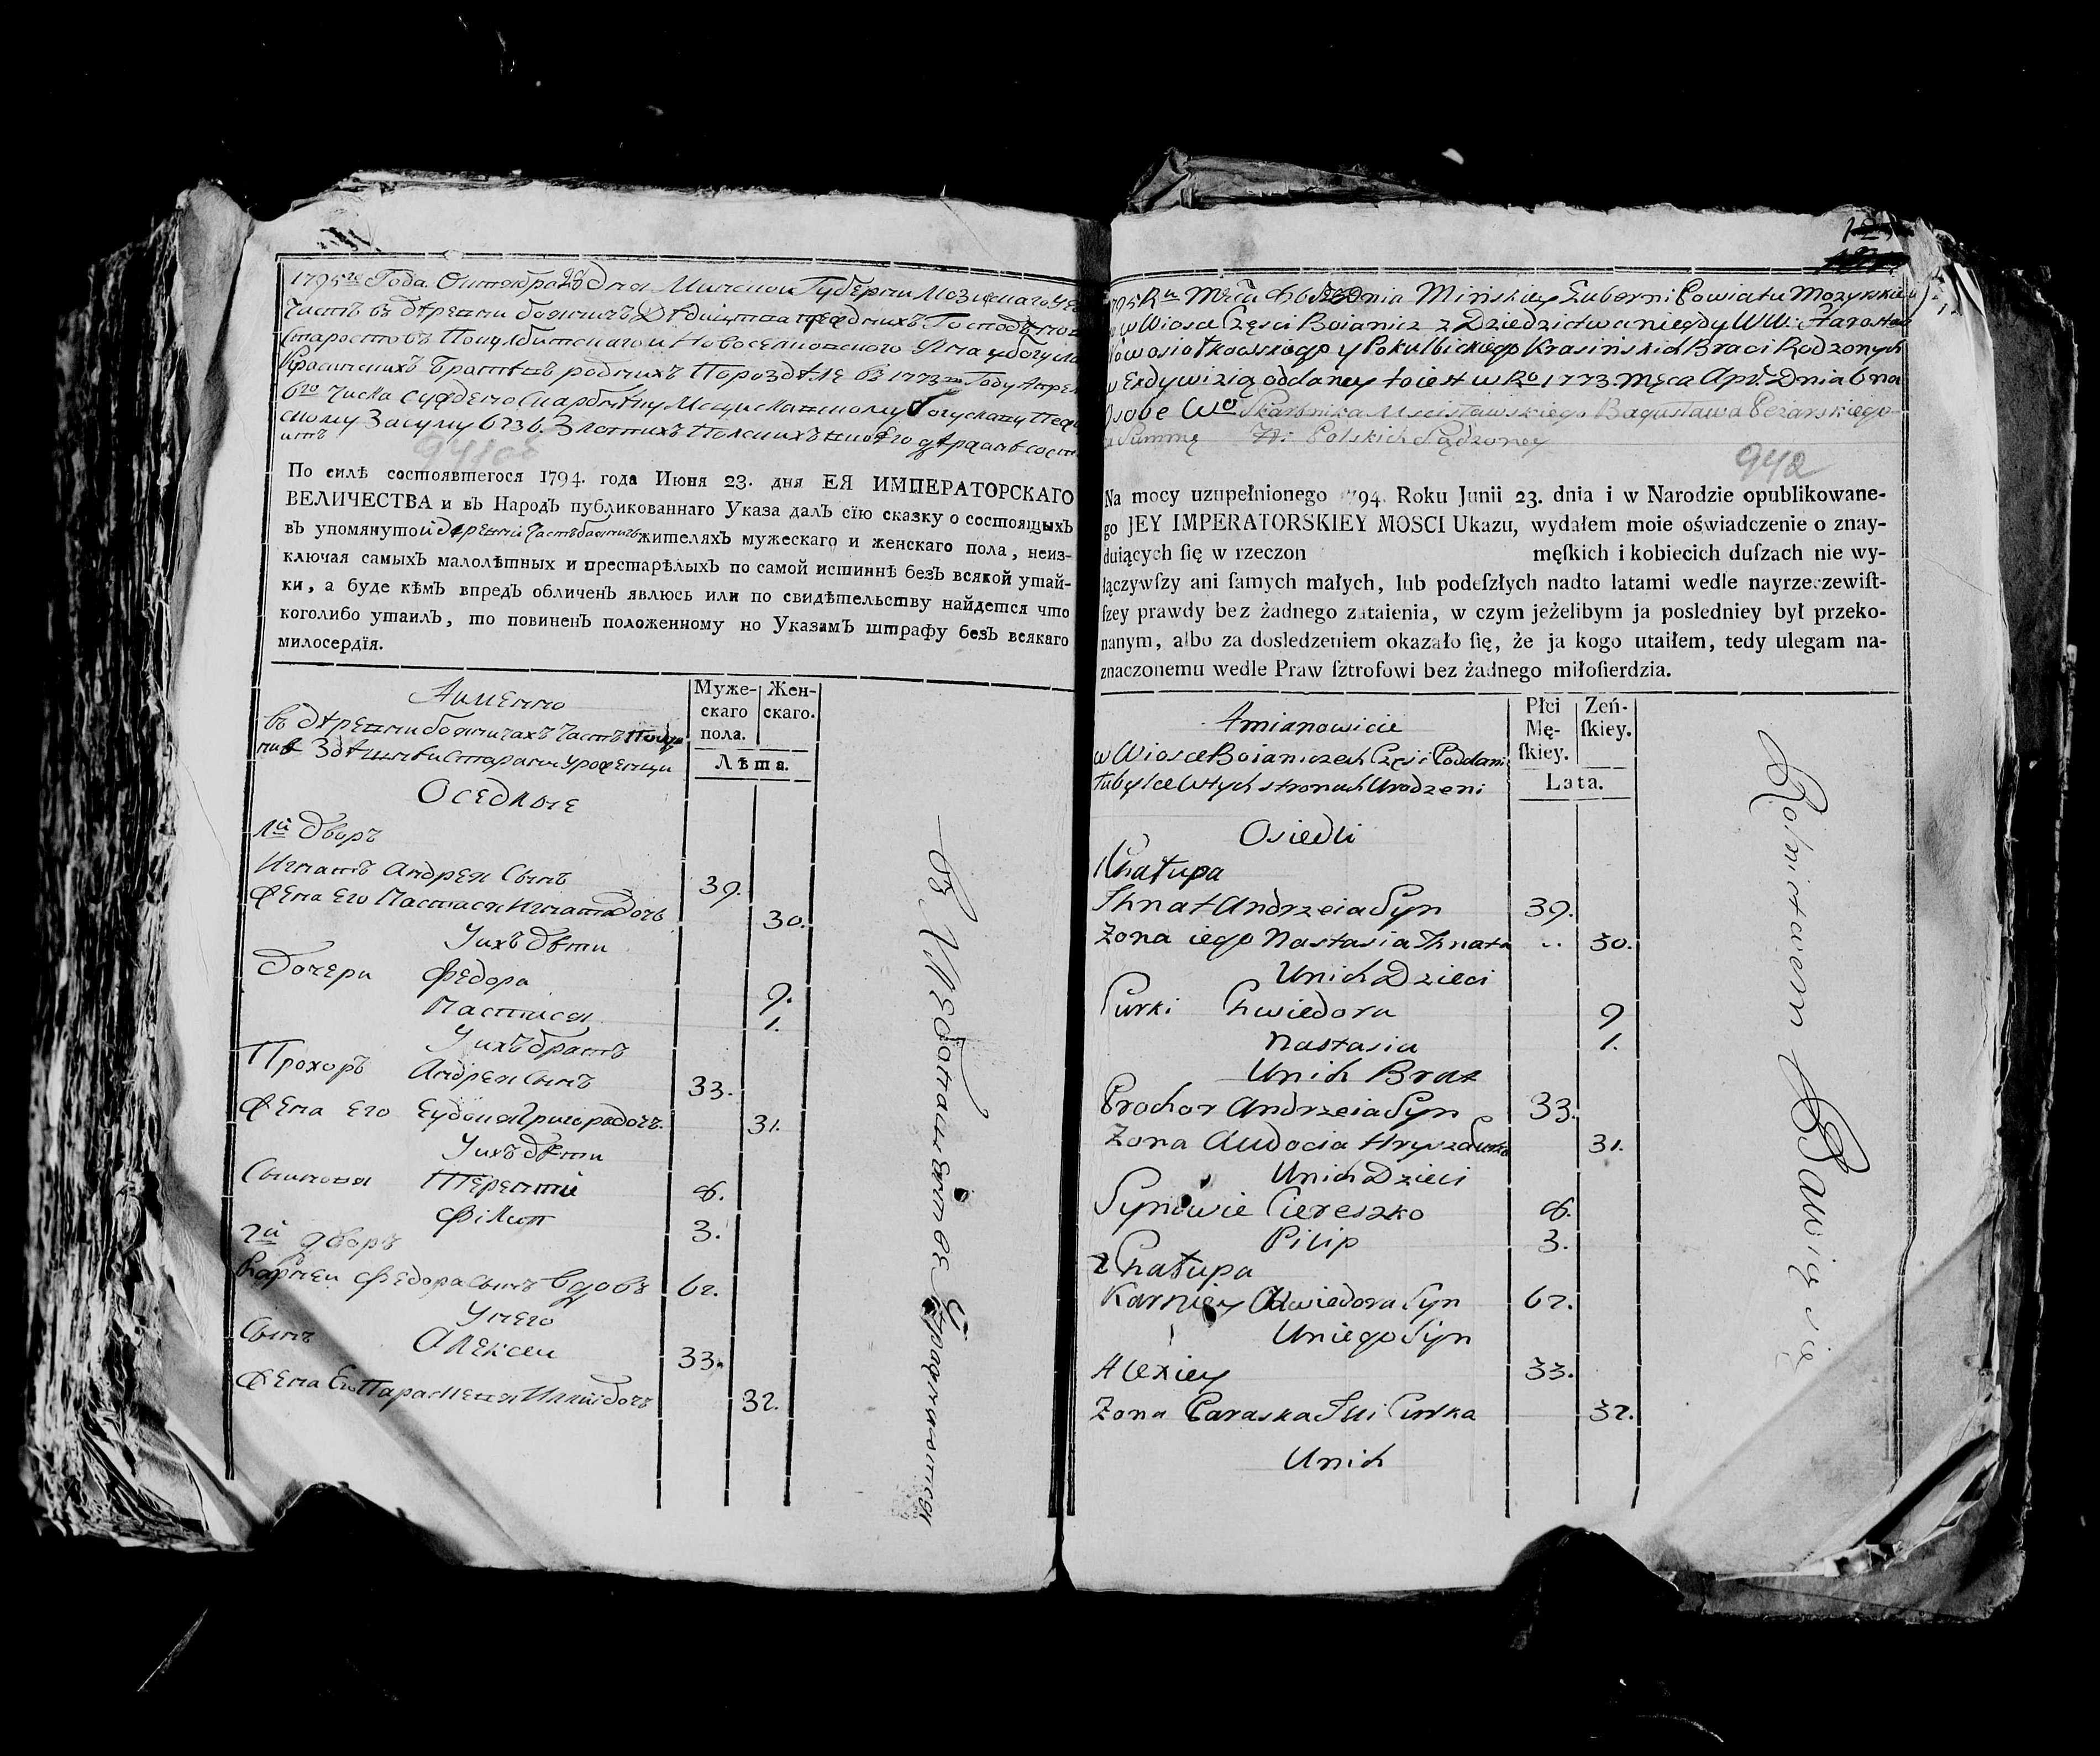 1795го Года Октебра 28 Дня Минской Губерни Мозирскаго
Часть въ дѣревни Бояничъ Дѣдицтва прежднихъ Господъ
Старостовъ Покулбитскаго и Новоселковского
Красинскихъ Братьевъ роднихъ Поразделе въ 1773м Году Апрел
6го Числа
скому Засуму 6236. Злотихъ Полскихъ
94108
По силѣ состоявшегося 1794. года Июня 23. дня ЕЯ ИМПЕРАТОРСКАГО
ВЕЛИЧЕСТВА и въ Народъ публикованнаго Указа далъ сїю сказку о состоящыхъ
въ упомянутой дѣревни Часть Бояничъ жителяхъ мужескаго и женскаго пола, неиз-
ключая самыхъ малолѣтныхъ и престарѣлыхъ по самой истиннѣ безъ всякой утай-
ки, а буде кѣмъ впредъ обличенъ явлюсь или по свидѣтельству найдется что
коголибо утаилъ, то повиненъ положенному по Указамъ штрафу безъ всякаго
милосердїя.
Аименно
въ дѣревни Бояничахъ Часть
Здѣшнеи Старани Уроженци
Муже-
скаго
пола.
Жен-
скаго.
Лѣта.
Оседлые
1й дворъ
Игнатъ Андрея Сынъ 39.
Жена Его Настася Игната дочь 30.
У ихъ дѣти
Дочери Федора 9.
Настася 1.
У ихъ братъ
Прохоръ Андрея Сынъ 33.
Жена Его Еудокия Григора дочь. 31.
У ихъ дѣти
Сыновья Терентий 8.
Филип 3.
2й дворъ
Карней Федора Сынъ вдовъ 62.
У него
Сынъ Алексеи 33.
Жена Ево Параскевия Илии дочь 32.
1795 Ru Mca 8bra 28 Dnia Mińskiey Guberni Powiatu Mozyrskiey
w Wiosce Części Boianicz z Dziedzictwa niegdy WW: Starostow
Nowosiołkowskiego y Pokulbickiego Krasińskich Braci Rodzonych
w Exdywizią oddaney to iest w Ro 1773 Męca Apr. Dnia 6 na
Osobe Wo Skarbnika Mscisławskiego Bagasława Pezarskiego
za Summę Zł: Polskich Sądzoney
942
Na mocy uzupełnionego 1794. Roku Junii 23. dnia i w Narodzie opublikowane-
go JEY IMPERATORSKIEY MOSCI Ukazu, wydałem moie oświadczenie o znay-
duiących ſię w rzeczon męſkich i kobiecich duſzach nie wy-
łączywſzy ani ſamych małych, lub podeſzłych nadto latami wedle nayrzeczewiſt-
ſzey prawdy bez żadnego zataienia, w czym jeżelibym ja posledniey był przeko-
nanym, albo za dosledzeniem okazało ſię, że ja kogo utaiłem, tedy ulegam na-
znaczonemu wedle Praw ſztrofowi bez żadnego miłoſierdzia.
Amianowicie
w Wiosce Boianiczach Części Poddani
Tubylce w tych stronach Urodzeni
Płci
Mę-
ſkiey.
Zeń-
ſkiey.
Lata.
Osiedli
1 Chałupa
Ihnat Andrzeia Syn 39.
Zona iego Nastasia Ihnata .. 30.
Unich Dzieci
Curki Chwiedora 9
Nastasia 1.
Unich Brat
Prochor Andrzeia Syn 33.
Zona Audocia Hrysza Curka 31.
Unich Dzieci
Synowie Ciereszko 8.
Pilip 3.
2 Chałupa
Karniey Chwiedora Syn 62.
Uniego Syn
Alexiey 33.
Zona Paraska Illi Curka 32.
Unich